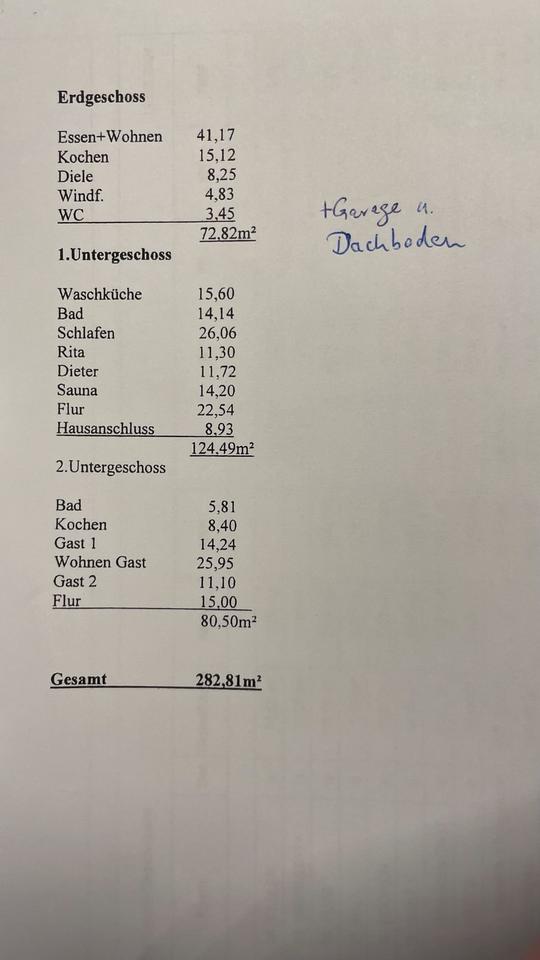 Erdgeschoss
Essen+Wohnen 41,17
Kochen 15,12
Diele 8,25
Windf. 4,83
WC 3,45
72,82m²
+Garage u.
Dachboden
1.Untergeschoss
Waschküche 15,60
Bad 14,14
Schlafen 26,06
Rita 11,30
Dieter 11,72
Sauna 14,20
Flur 22,54
Hausanschluss 8,93
124,49m²
2.Untergeschoss
Bad 5,81
Kochen 8,40
Gast 1 14,24
Wohnen Gast 25,95
Gast 2 11,10
Flur 15,00
80,50m²
Gesamt 282,81m²